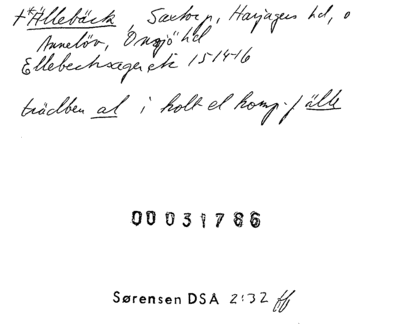 †*Allebäck, Saxtorp, Harjagers hd, o
Annelöv, Onsjö hd
Ellebechsager etc 1514-16
trädben al i koll el komp. f älle
00031766
Sørensen DSA 2:32 ff